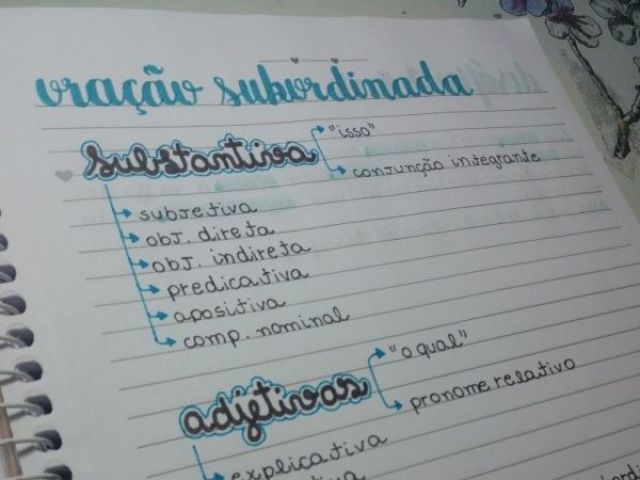 oração subordinada
substantiva
"isso"
conjunção integrante
subjetiva
obj. direta
obj. indireta
predicativa
apositiva
comp. nominal
adjetivas
"o qual"
pronome relativo
explicativa